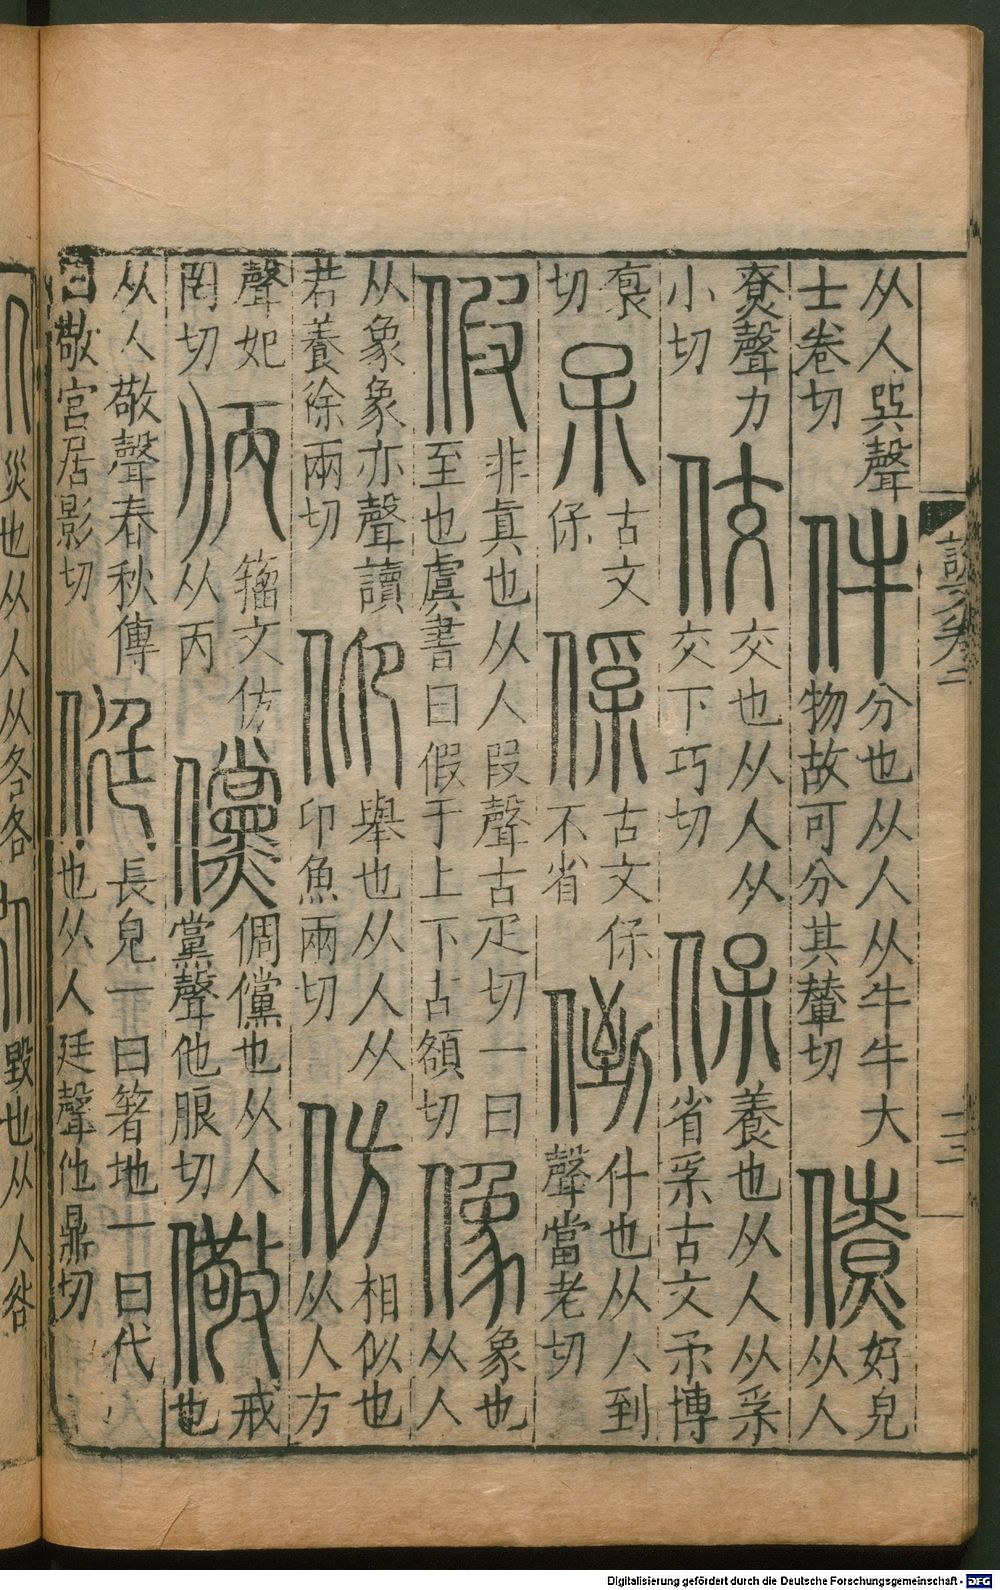 从人巽聲
士卷切
件
分也从人从牛牛大
物故可分其輦切
僚
好皃从人
尞聲力
小切
佼
交也从人从
交下巧切
保
養也从人从𤓽
省𤓽古文孚博
裒
切
呆
古文
保
保
古文保
不省
倒
什也从人到
聲當老切
假
非眞也从人叚聲古疋切一曰
至也虞書曰假于上下古頟切
像
象也
从人
从象象亦聲讀
若養徐兩切
仰
舉也从人从
卬魚兩切
仿
相似也
从人方
聲妃
罔切
俩
籒文仿
从丙
儻
倜儻也从人
黨聲他朗切
儆
戒
也
从人敬聲春秋傳
曰敬宮居影切
侹
長皃一曰箸地一曰代
也从人廷聲他鼎切
災也从人从各各
毀也从人
Digitalisierung gefördert durch die Deutsche Forschungsgemeinschaft - DFG